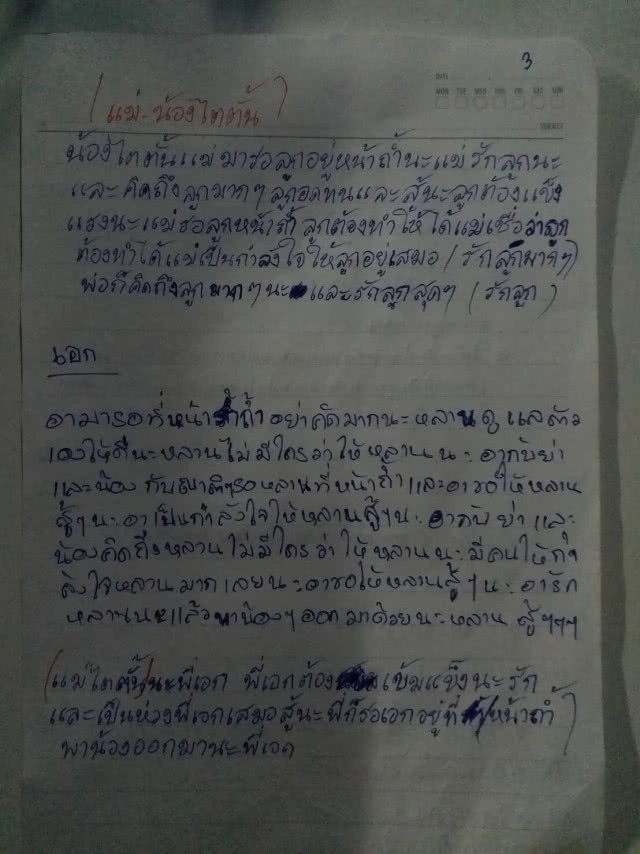 3
MON TUE WED THU FRI SAT SUN
(แม่-น้องไตตั้น)
น้องไตตั้นแม่มารอลูกอยู่หน้าถ้ำนะแม่รักลูกนะ
และคิดถึงลูกมากๆลูกอดทนและสู้นะลูกต้องแข็ง
แรงนะแม่รอลูกหน้าถ้ำ ลูกต้องทำให้ได้แม่เชื่อว่าลูก
ต้องทำได้แม่เป็นกำลังใจให้ลูกอยู่เสมอ (รักลูกมากๆ)
พ่อก็คิดถึงลูกมากๆนะ และรักลูกสุดๆ (รักลูก)
เอก
อามารอที่หน้าถ้ำอย่าคิดมากนะหลานดูแลตัว
เองให้ดีนะหลานไม่มีใครว่าให้หลานนะอากับย่า
และน้อง กับญาติๆรอหลานที่หน้าถ้ำและอาขอให้หลาน
สู้ๆนะอาเป็นกำลังใจให้หลานสู้ๆนะอากับย่าและ
น้องคิดถึงหลานไม่มีใครว่าให้หลานนะมีคนให้กำ
ลังใจหลานมากเลยนะอาขอให้หลานสู้ๆนะอารัก
หลานนะแล้วพาน้องๆออกมาด้วยนะหลาน สู้ๆๆๆ
(แม่ไตตั้น)นะพี่เอก พี่เอกต้องเข้มแข็งนะรัก
และเป็นห่วงพี่เอกเสมอสู้นะพี่ก็รอเอกอยู่ที่หน้าถ้ำ
พาน้องออกมานะพี่เอก